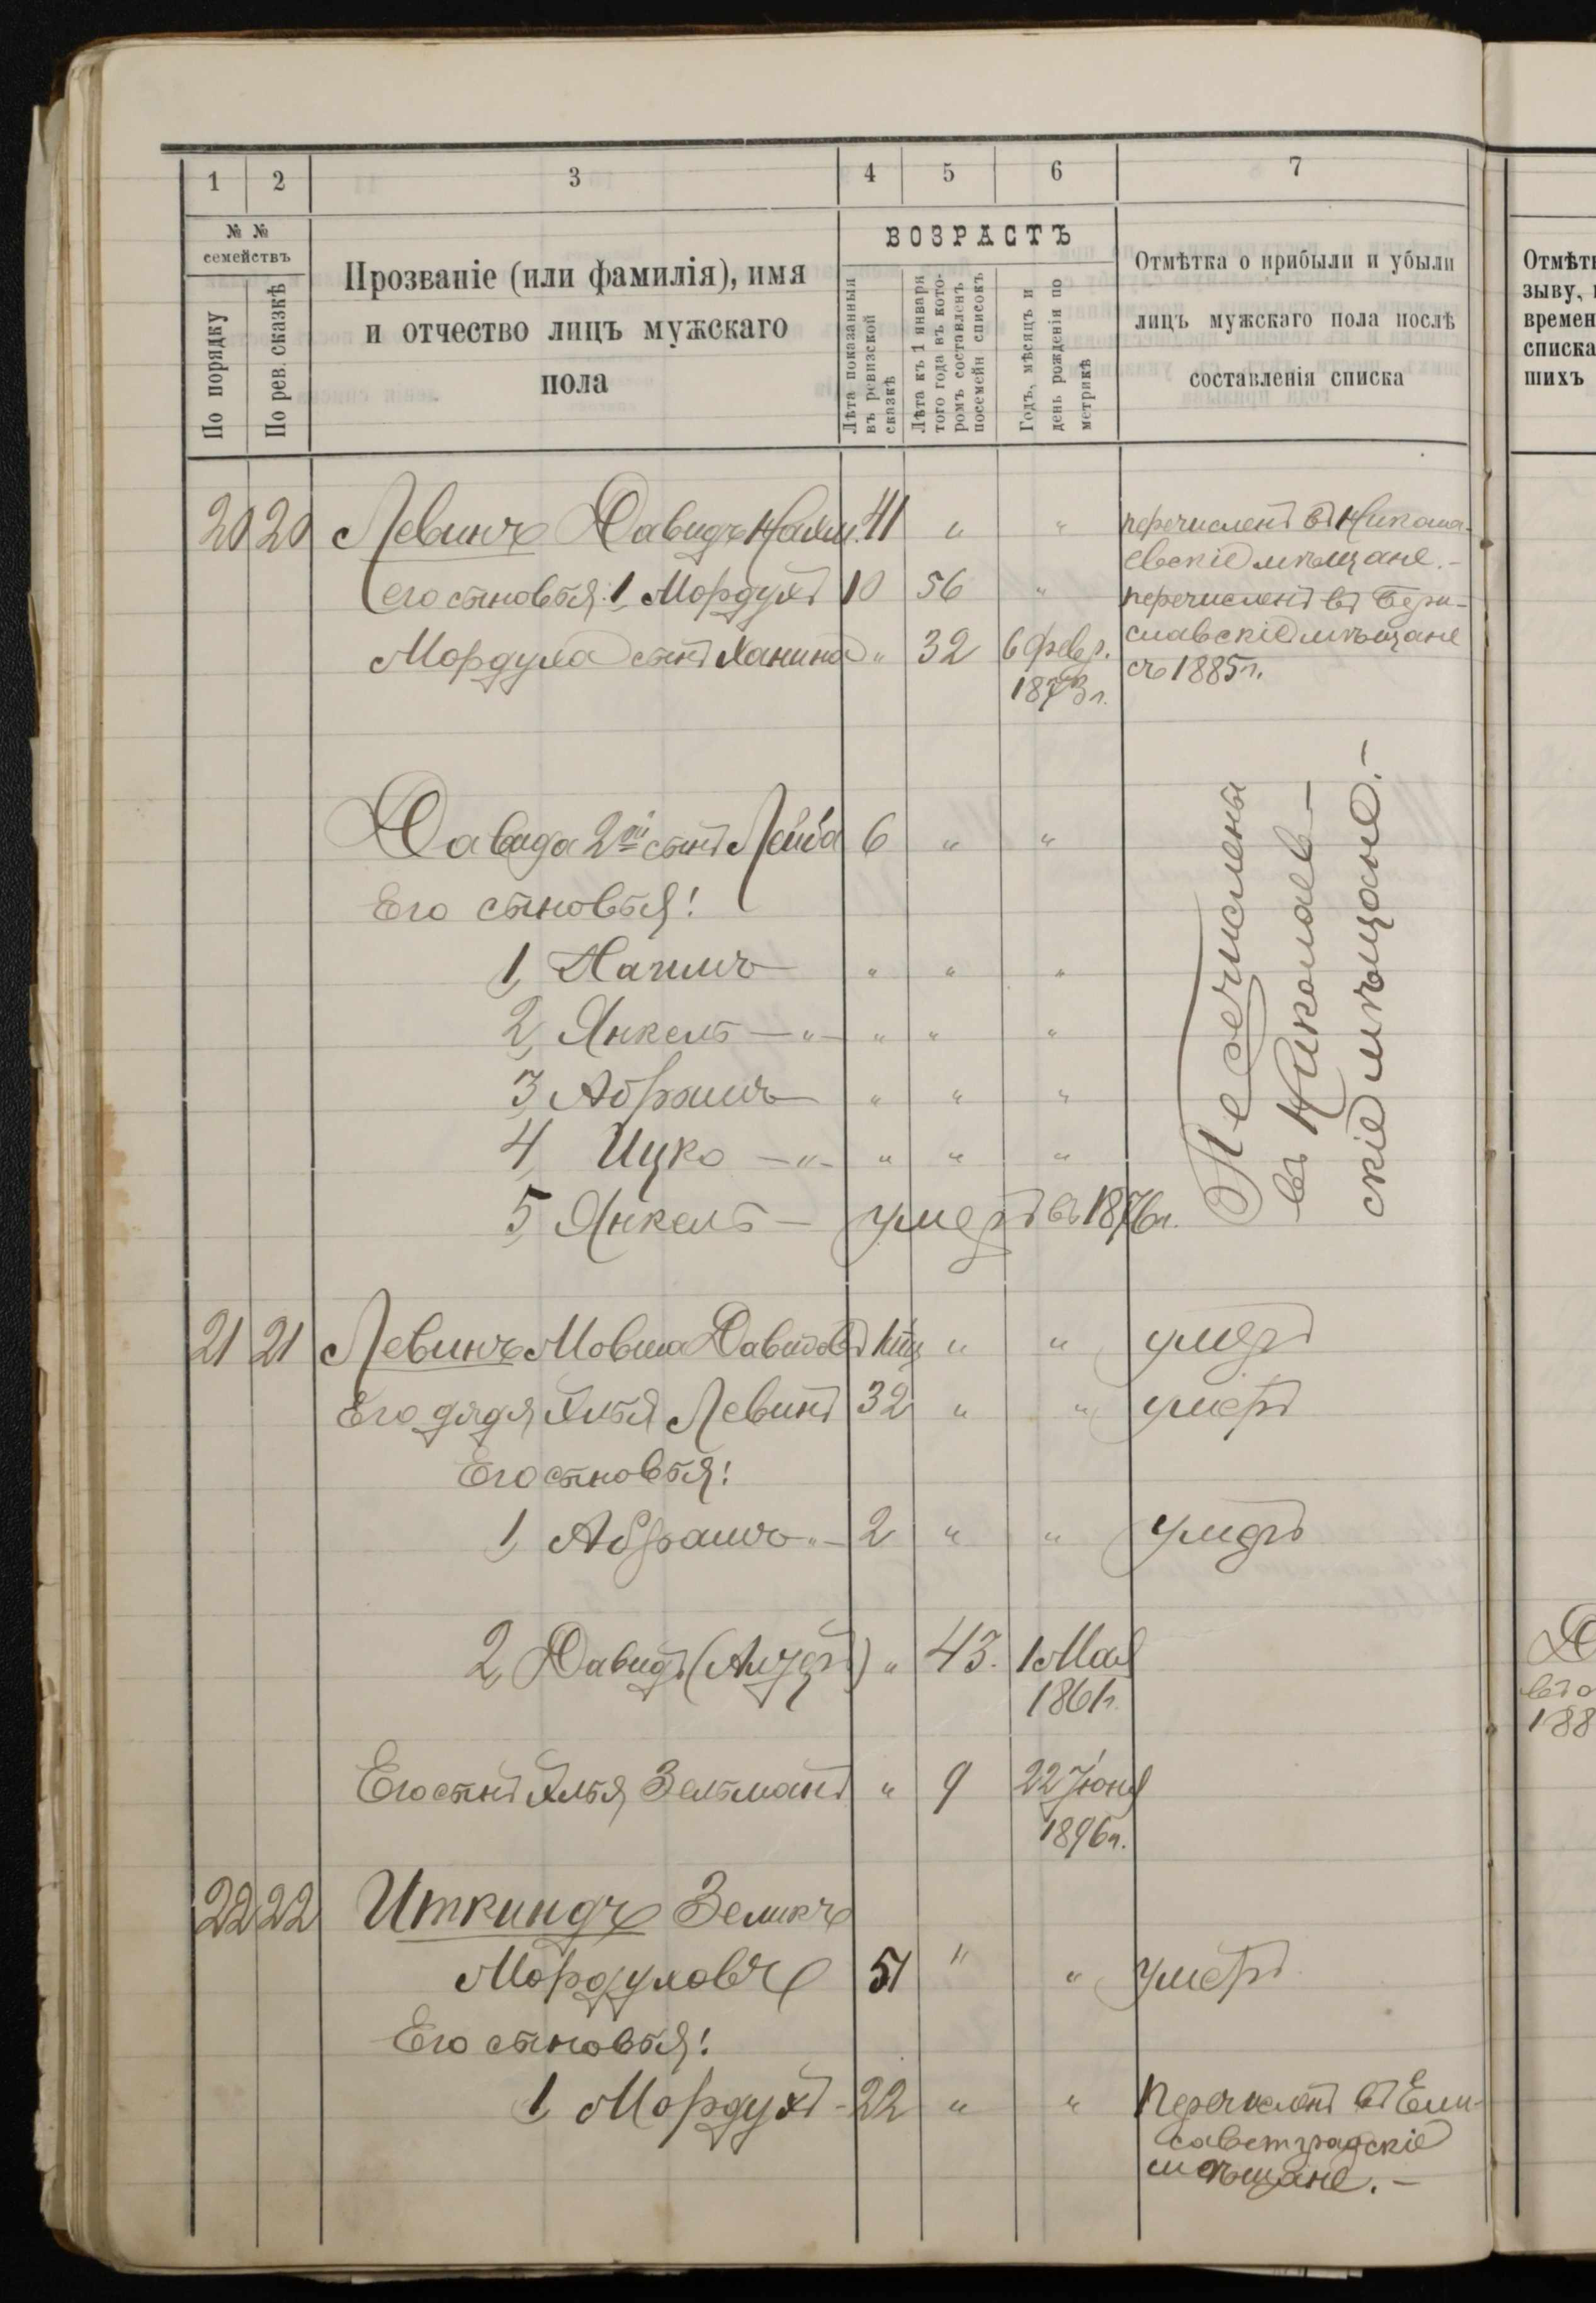 1 2 3 4 5 6 7
№ №
семействъ
По порядку
По рев. сказкѣ
Прозваніе (или фамилія), имя
и отчество лицъ мужскаго
пола
ВОЗРАСТЪ
Лѣта показанныя
въ ревизской
сказкѣ
Лѣта къ 1 января
того года въ кото-
ромъ составленъ
посемейн списокъ
Годъ, мѣсяцъ и
день рожденія по
метрикѣ
Отмѣтка о прибыли и убыли
лицъ мужскаго пола послѣ
составленія списка
20 20 Левинъ Давидъ 41 " " перечисленъ въ Никола-
евскіе мѣщане.-
его сыновья: 1, Мордухъ 10 56 " перечисленъ въ Бери-
славскіе мѣщане
Мордуха сынъ Ханина " 32 6 февр. съ 1885 г.
1873 г.
Давида 2й сынъ Лейба 6 " "
Его сыновья!
1, " " "
2, Янкель — " — " " "
3, Абрамъ — " " "
4, Ицко — " — " " "
5, Янкель — умеръ въ 1876 г.
Перечислены
въ Николаев-
скіе мѣщане.-
21 21 Левинъ Мовша Давидовъ " " умеръ
Его дядя Илья Левинъ 32 " " умеръ
Его сыновья!
1, Абрамъ " — 2 " " умеръ
2, Давидъ " 43. 1 Мая
1861 г.
Его сынъ Илья Зельманъ " 9 22 Іюня
1896 г.
22 22 Иткиндъ Зеликъ
Мордуховъ 51 " " умеръ
Его сыновья!
1, Мордухъ - 22 " " Перечисленъ въ Ели-
саветградскіе
мѣщане.-
Отмѣт
зыву,
времен
списка
шихъ
188